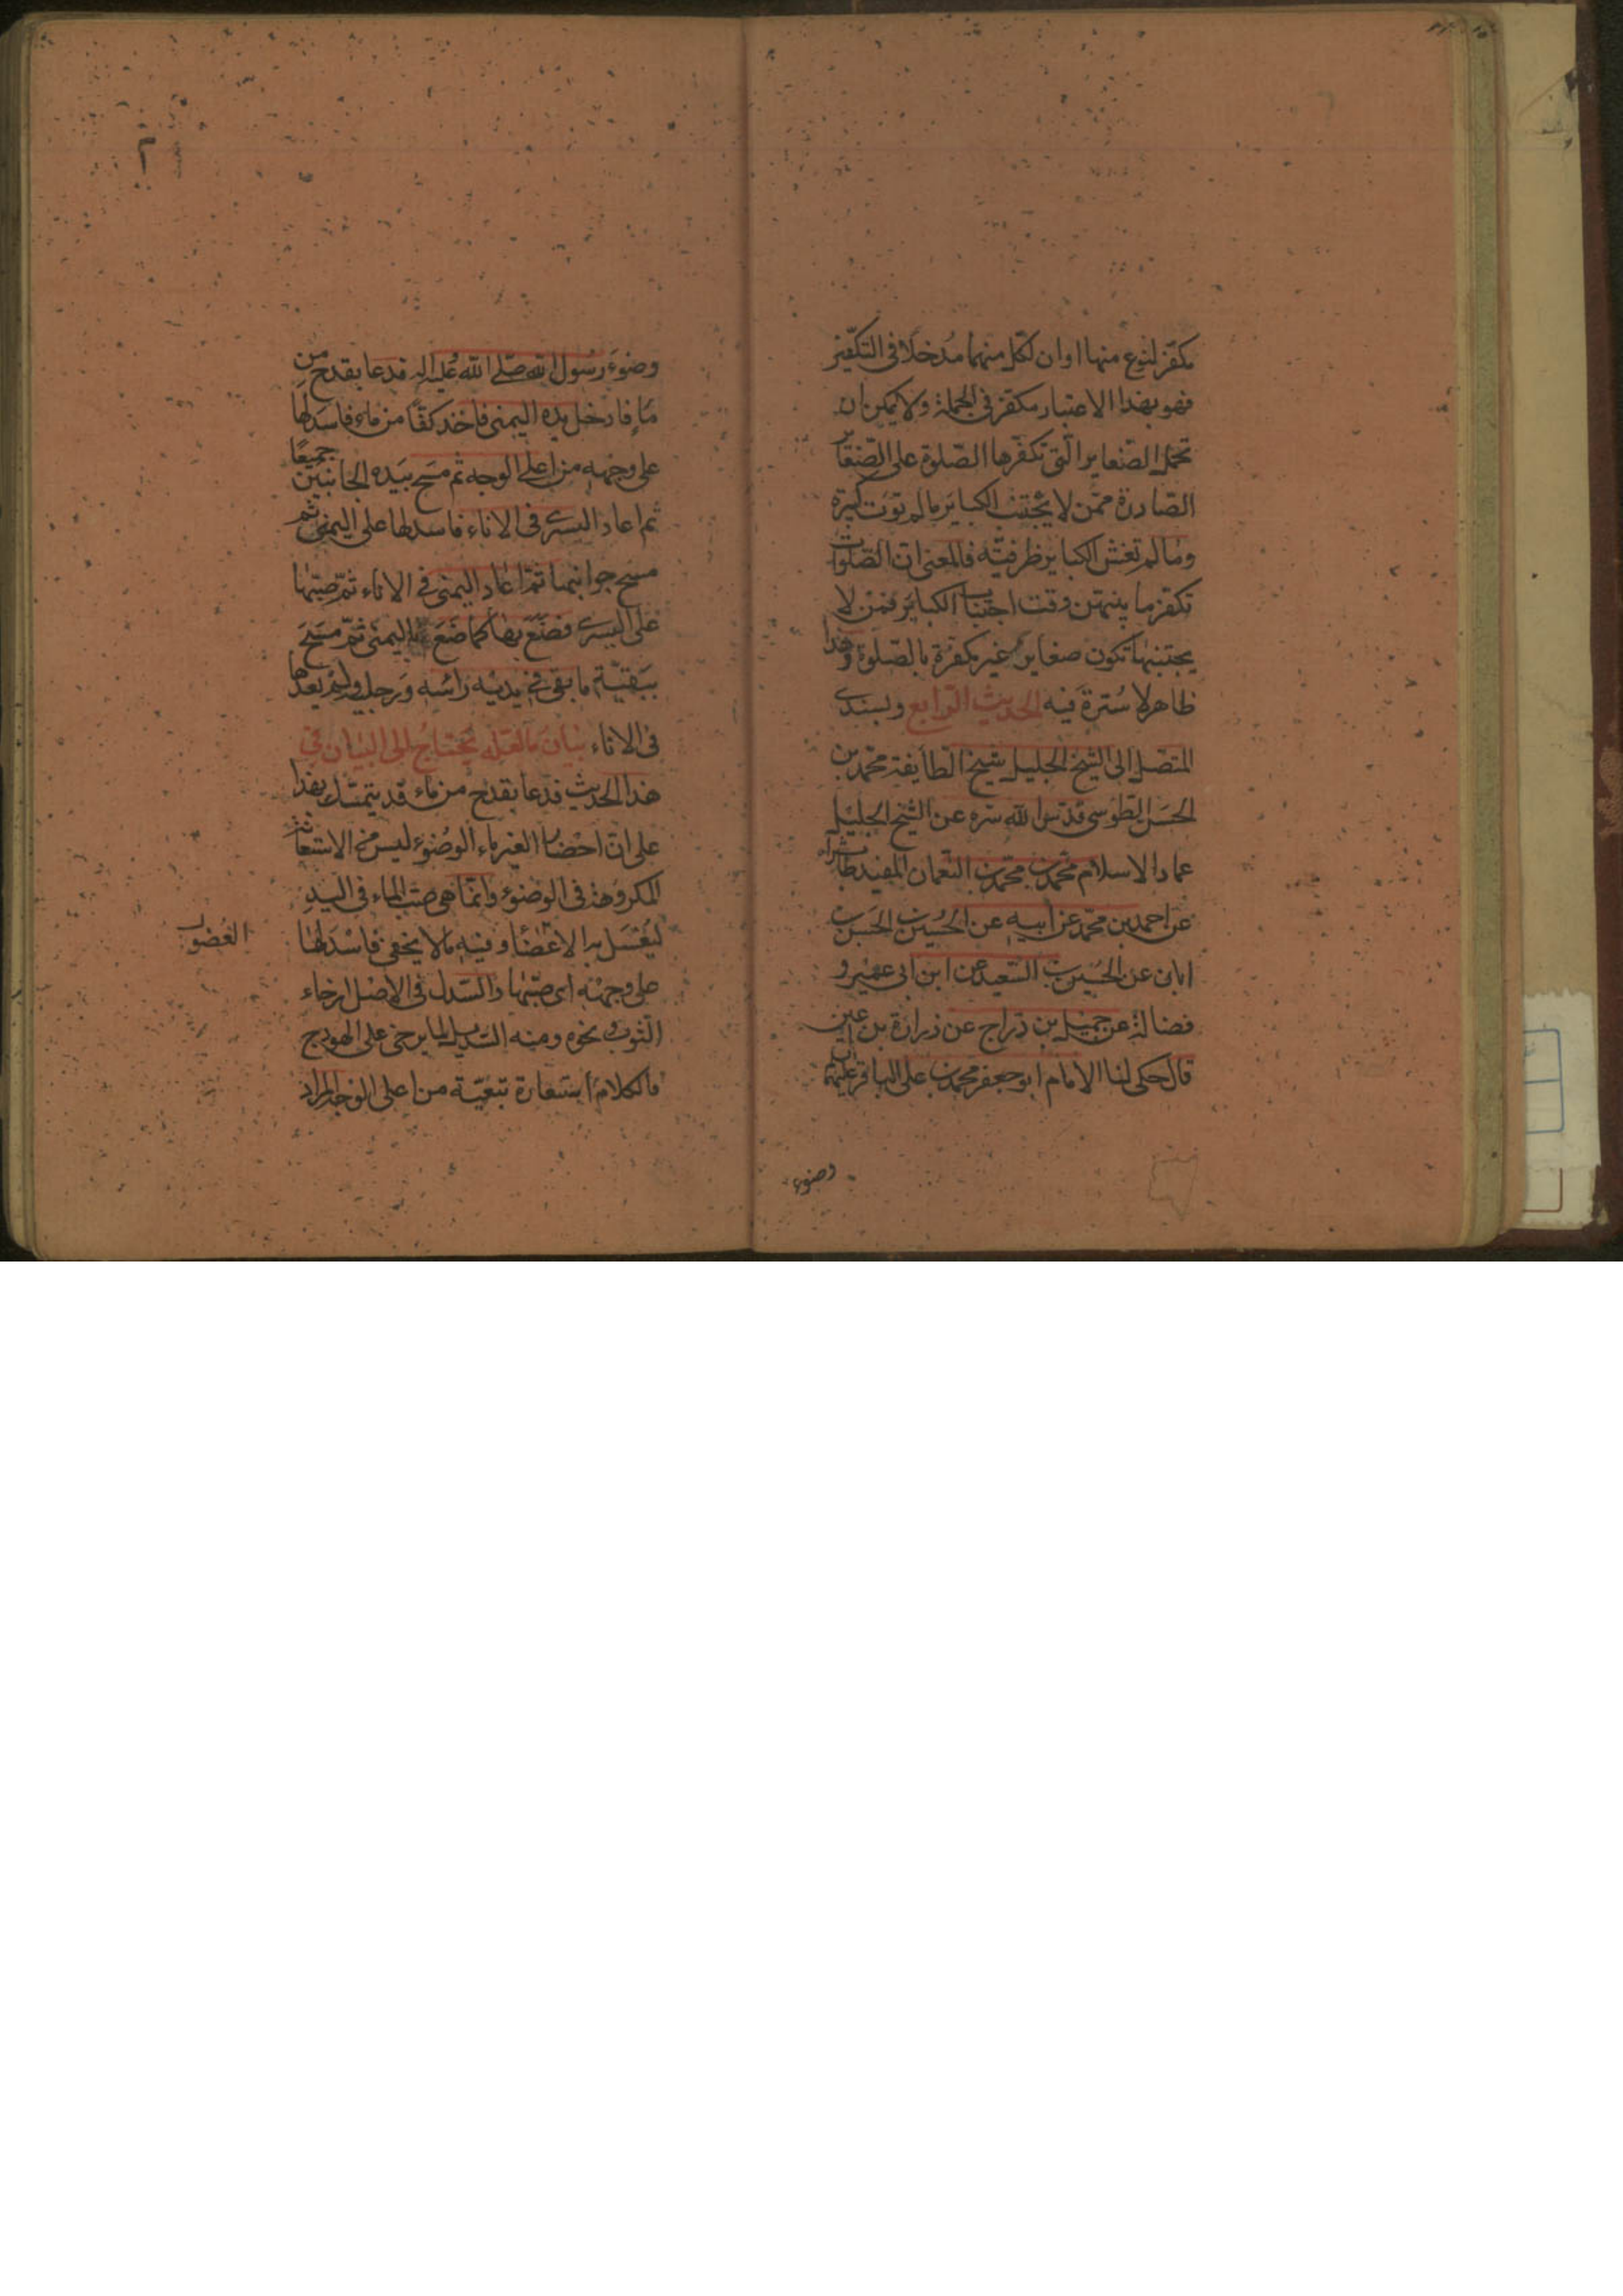 مكفّر لنوع منها او ان لكل منهما مدخلا فى التكفير
فهو بهذا الاعتبار مكفر فى الجملة ولا يمكن ان
تحمل الصغاير الّتى تكفّرها الصّلوة على الصّغا
الصّادرة ممّن لا يجتنب الكباير مالم توت كبيرة
وما لم تغش الكباير ظرفيّه فالمعنى ان الصّلوات
تكفّر ما بينهن وقت اجتناب الكباير فمن لا
يجتنبها تكون صغايره غير مكفرة بالصّلوة وهذا
ظاهر لا سترة فيه الحديث الرّابع وبسندى
المتصل الى الشيخ الجليل شيخ الطايفة محمّد بن
الحسن الطوسى قدّس الله سره عن الشيخ الجليل
عماد الاسلام محمّد بن محمّد بن النعمان المفيد طاب ثراه
عن احمد بن محمّد عن ابيه عن الحسين بن الحسن بن
ابان عن الحسين بن السّعيد عن ابن ابى عمير و
فضالة عن جميل بن درّاج عن زرارة بن اعين
قال حكى لنا الامام ابو جعفر محمد بن على الباقر عليهما
وضوء
وضوء رسول الله صلّى الله عليه واله فدعا بقدح من
ماء فادخل يده اليمنى فاخذ كفّا من ماء فاسدلها
على وجهه من اعلى الوجه ثم مسح بيده الجانبين جميعًا
ثم اعاد اليسرى فى الاناء فاسدلها على اليمنى ثم
مسح جوانبها ثمّ اعاد اليمنى فى الاناء ثمّ صبّها
على اليسرى فصنع بها كما صنع باليمنى ثمّ مسح
ببقيّة ما بقى فى يديه راسه ورجليه ولم يعدها
فى الاناء بيان ما لعلّه يحتاج الى البيان فى
هذا الحديث فدعا بقدح من ماء قد يتمسّك بهذا
على انّ احضار الغير ماء الوضوء ليس من الاستعانة
المكروهة فى الوضوء وانّما هى صبّ الماء فى اليد
ليغسل به الاعضا وفيه مالا يخفى فاسدلها
على وجهه اى صبّها والسّدل فى الاصل ارخاء
الثوب ونحوه ومنه السّديل لما يرخى على الهودج
فالكلام استعارة تبعيّة من اعلى الوجه المراد